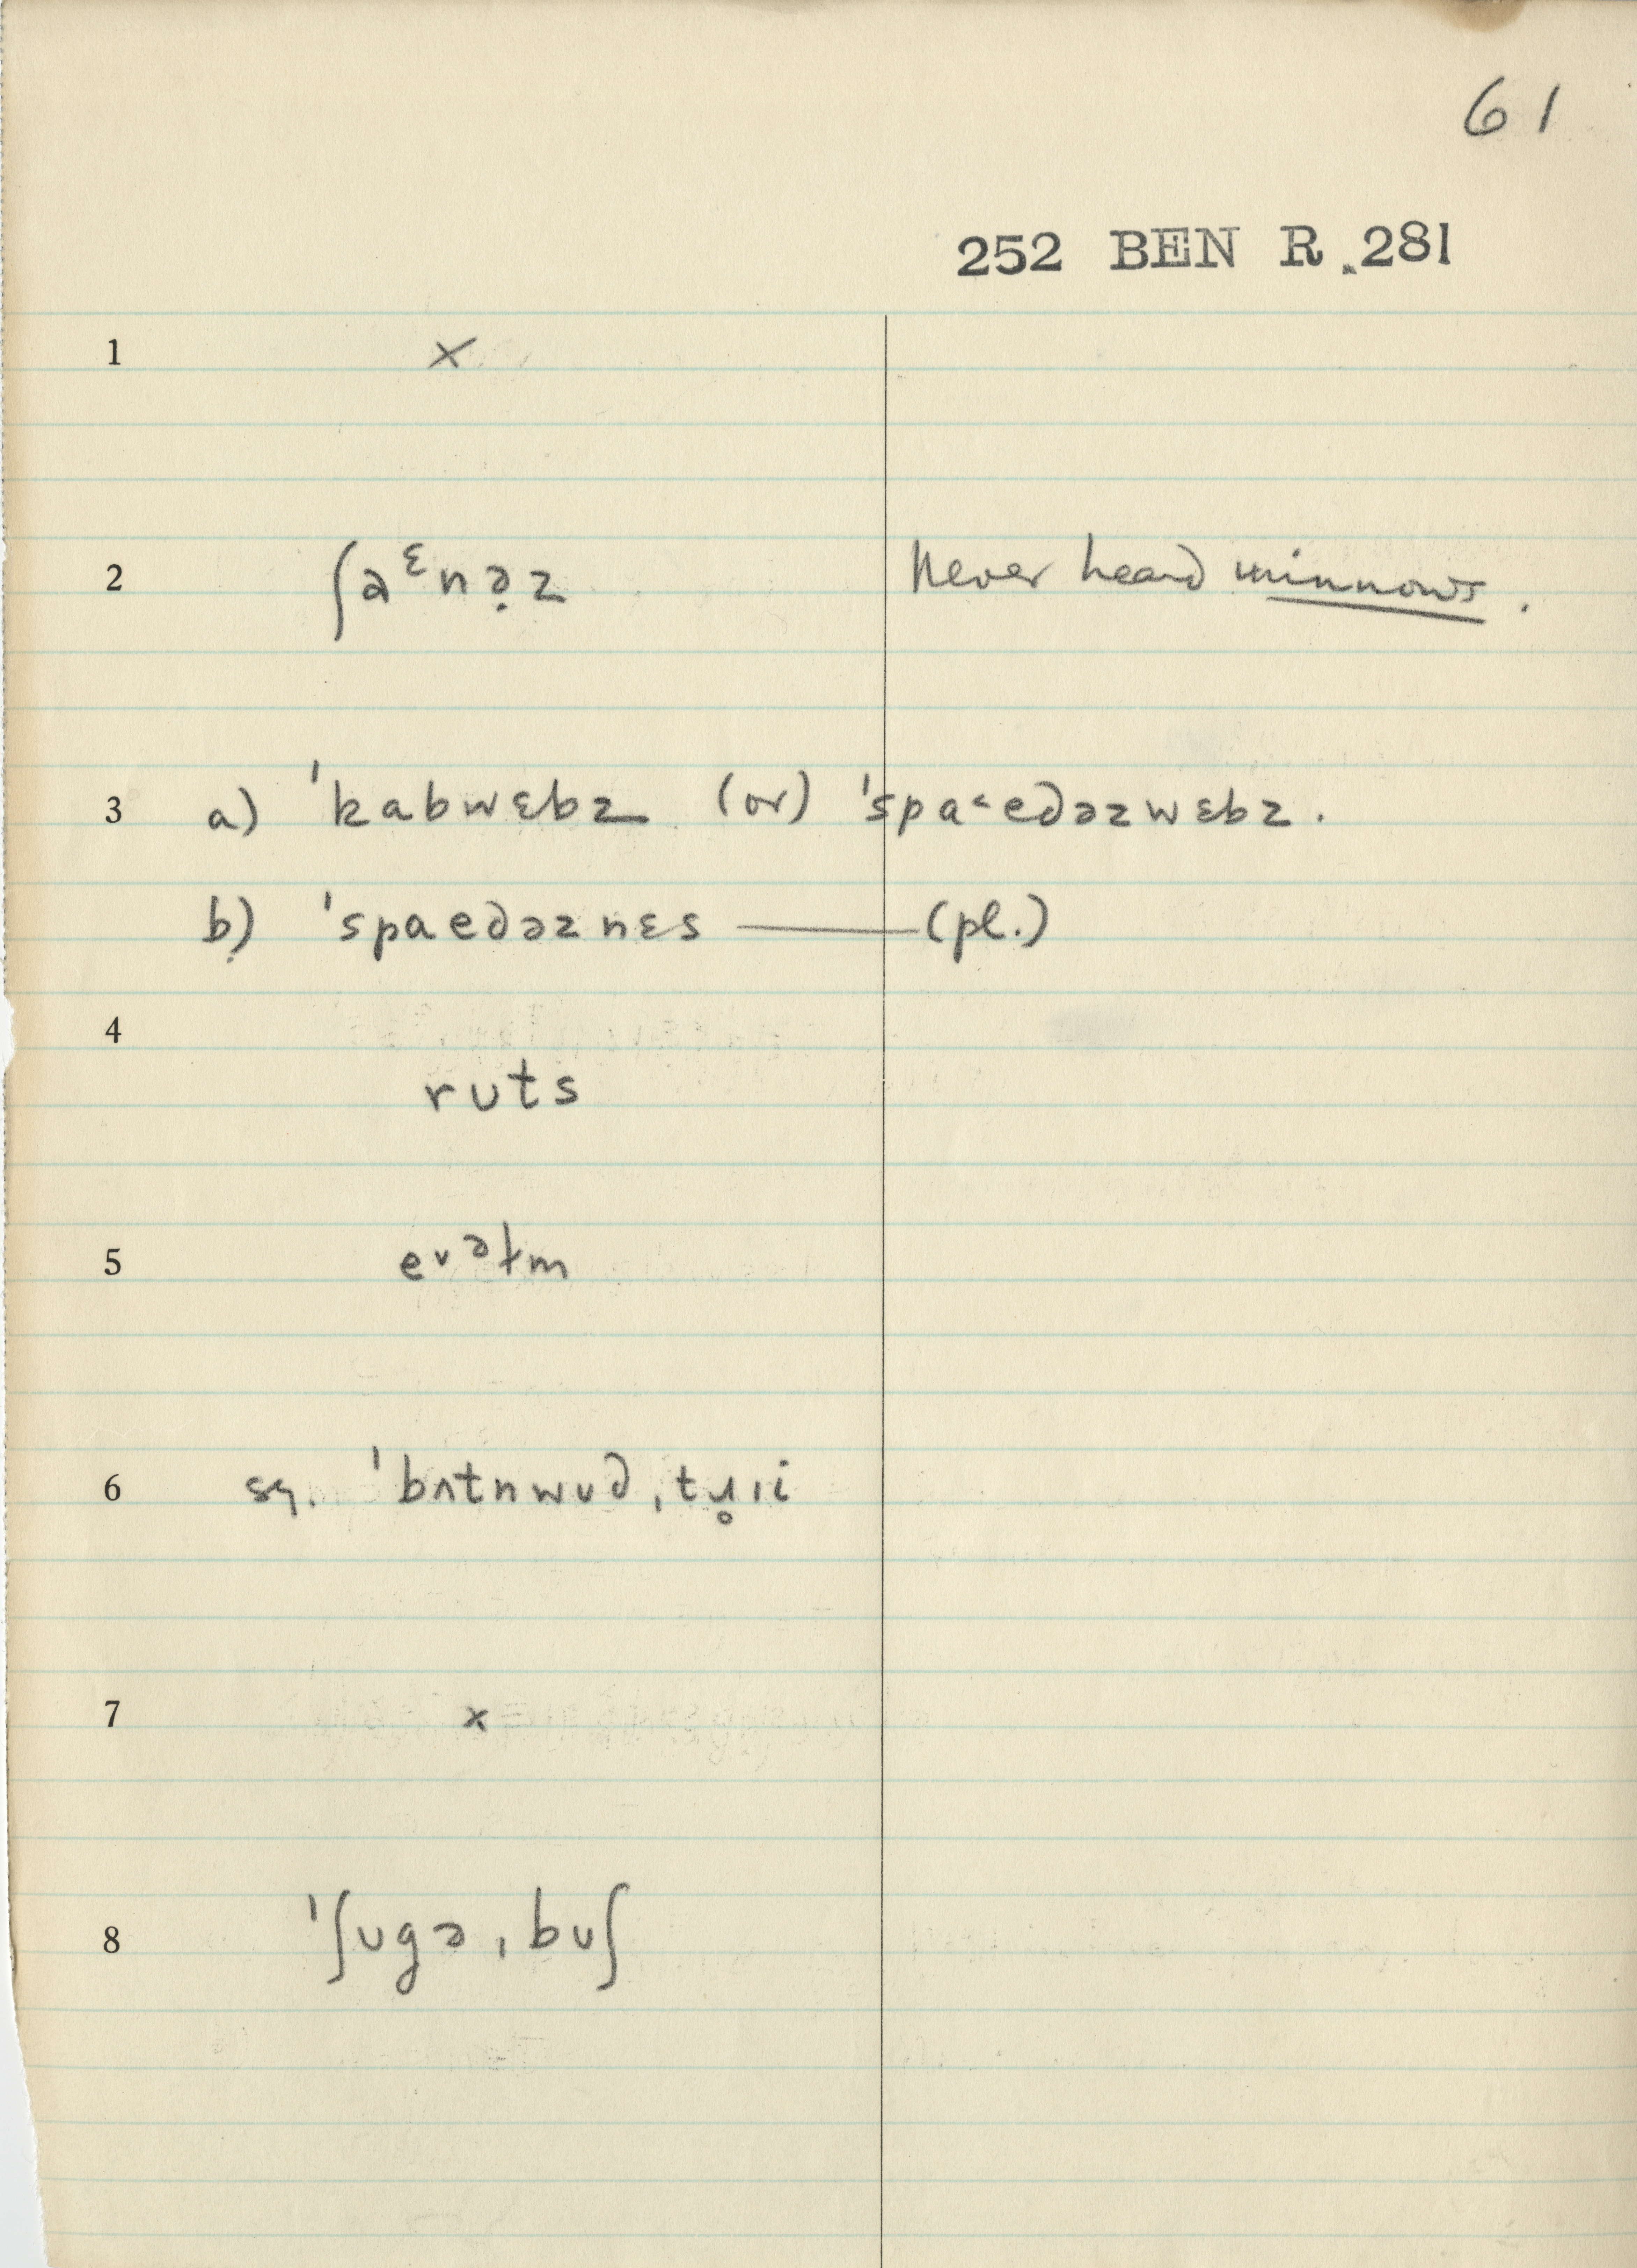 61
252 BEN R. 281
1 ×
2 ʃaᵋnə̣z Never heard minnows.
3 a) ˈkabwɛbz (or) ˈspa˂edəzwɛbz.
b) ˈspaedəznɛs —— (pl.)
4
rʊts
5 eᵛᵊɫm
6 sq. ˈbʌtnwʊd ˌtɹ̥ɪi
7 ×
8 ˈʃʊgə ˌbʊʃ